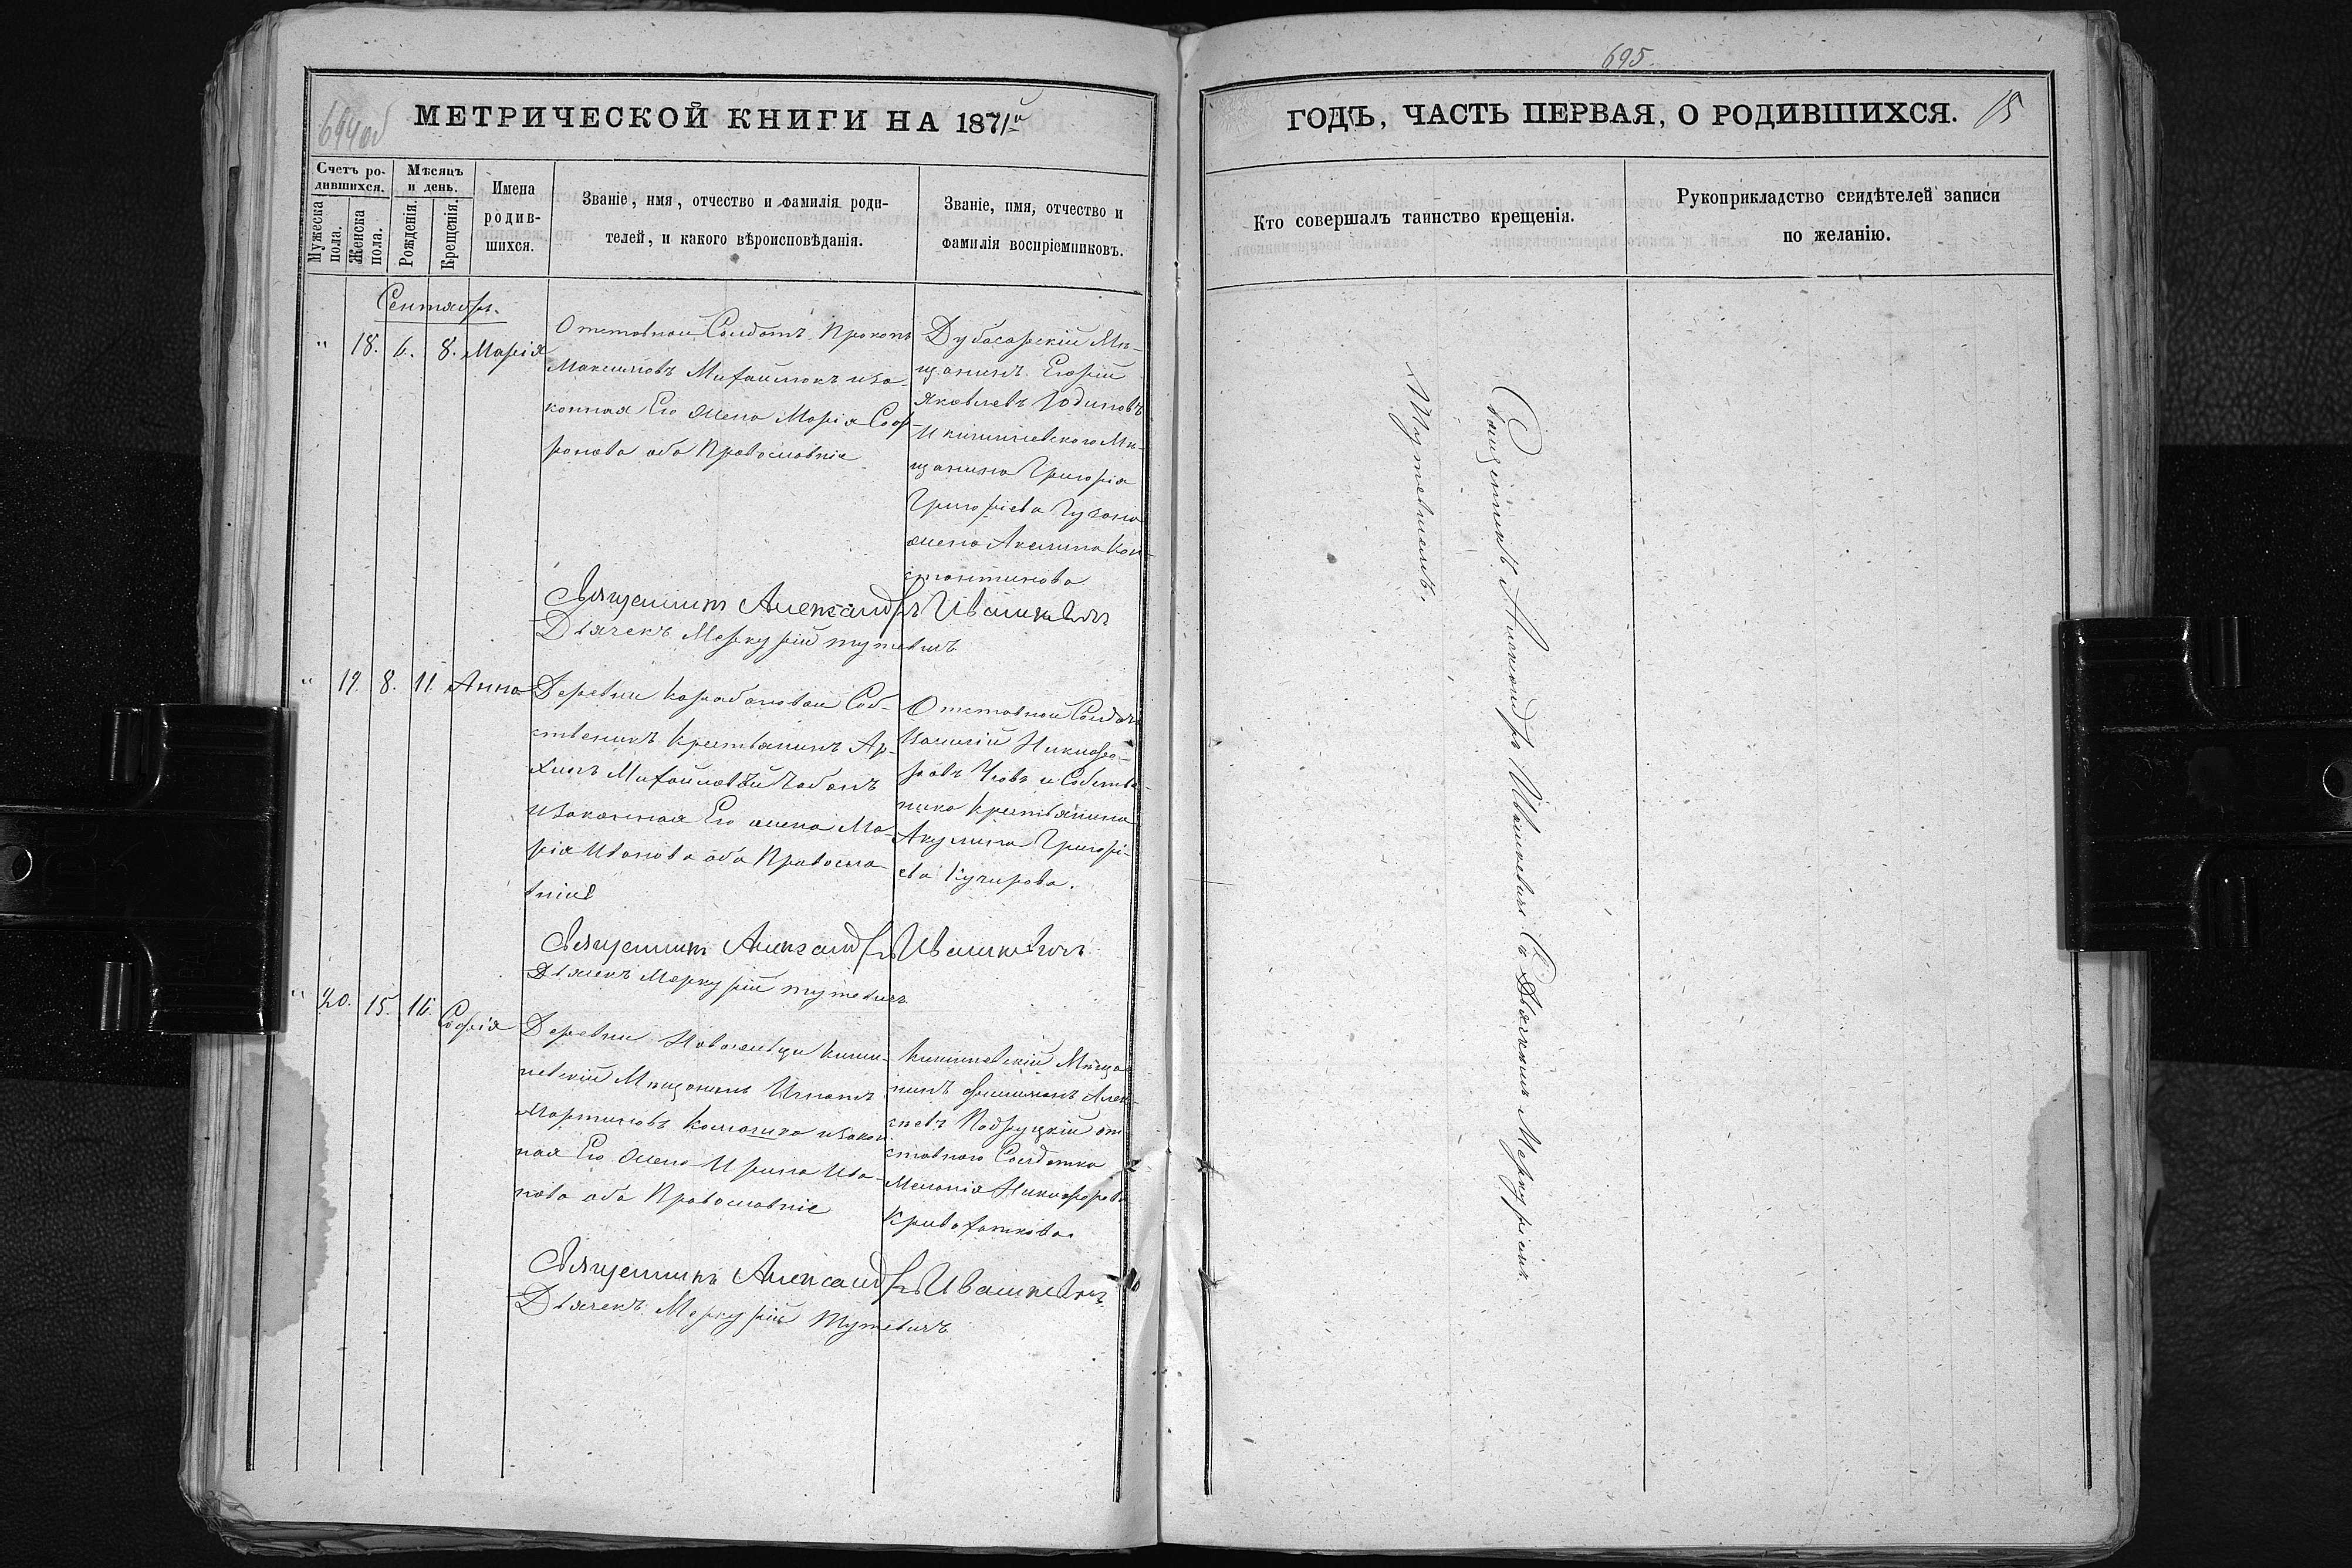 694 об
МЕТРИЧЕСКОЙ КНИГИ НА 1871й
Счетъ ро-
дившихся.
Мужеска
пола.
Женска
пола.
Мѣсяцъ
и день.
Рожденія.
Крещенія.
Имена
родив-
шихся.
Званіе, имя, отчество и фамилія роди-
телей, и какого вѣроисповѣданія.
Званіе, имя, отчество и
фамилія воспріемниковъ.
Сентябрь.
" 18. 6. 8. Марія
Отставной Солдатъ Прокопъ
Максимовъ Михайлюкъ и за-
конная Его жена Марія Соф-
ронова оба Православніе
Дубасарскій Мѣ-
щанинъ Георгій
Яковлевъ
и Кишиневского Мѣ-
щанина Григорія
Григоріева
жена Акилина Кон-
стантинова
Священникъ Александръ Ивашкевичъ
Дьячекъ Меркурій Тутевичъ
" 19. 8. 11. Анна
Деревни Карабановой Соб-
ственикъ Крестьянинъ Ар-
хипъ Михайловъ Чабанъ
и законная Его жена Ма-
рія Иванова оба Правосла-
вніе
Отставной Солдатъ
Василій Никифо-
ровъ и Собстве-
ника Крестьянина
Акулина Григорі-
ева Кучерова.
Священникъ Александръ Ивашкевичъ
Дьячекъ Меркурій Тутевичъ
" 20. 15. 16. Софія
Деревни Новосельци Киши-
невскій Мещанинъ Игнатъ
Мартиновъ и закон-
ная Его Жена Ирина Ива-
нова оба Православніе
Кишиневскій Мѣща-
нинъ Филимонъ Алек-
сеевъ от-
ставного Солдатка
Меланія Никифорова
Священникъ Александръ Ивашкевичъ
Дьячекъ Меркурій Тутевичъ
695.
ГОДЪ, ЧАСТЬ ПЕРВАЯ, О РОДИВШИХСЯ. 15
Кто совершалъ таинство крещенія.
Рукоприкладство свидѣтелей записи
по желанію.
Священникъ Александръ Ивашкевичъ Съ Дьячкомъ Меркуріемъ
Тутевичемъ.